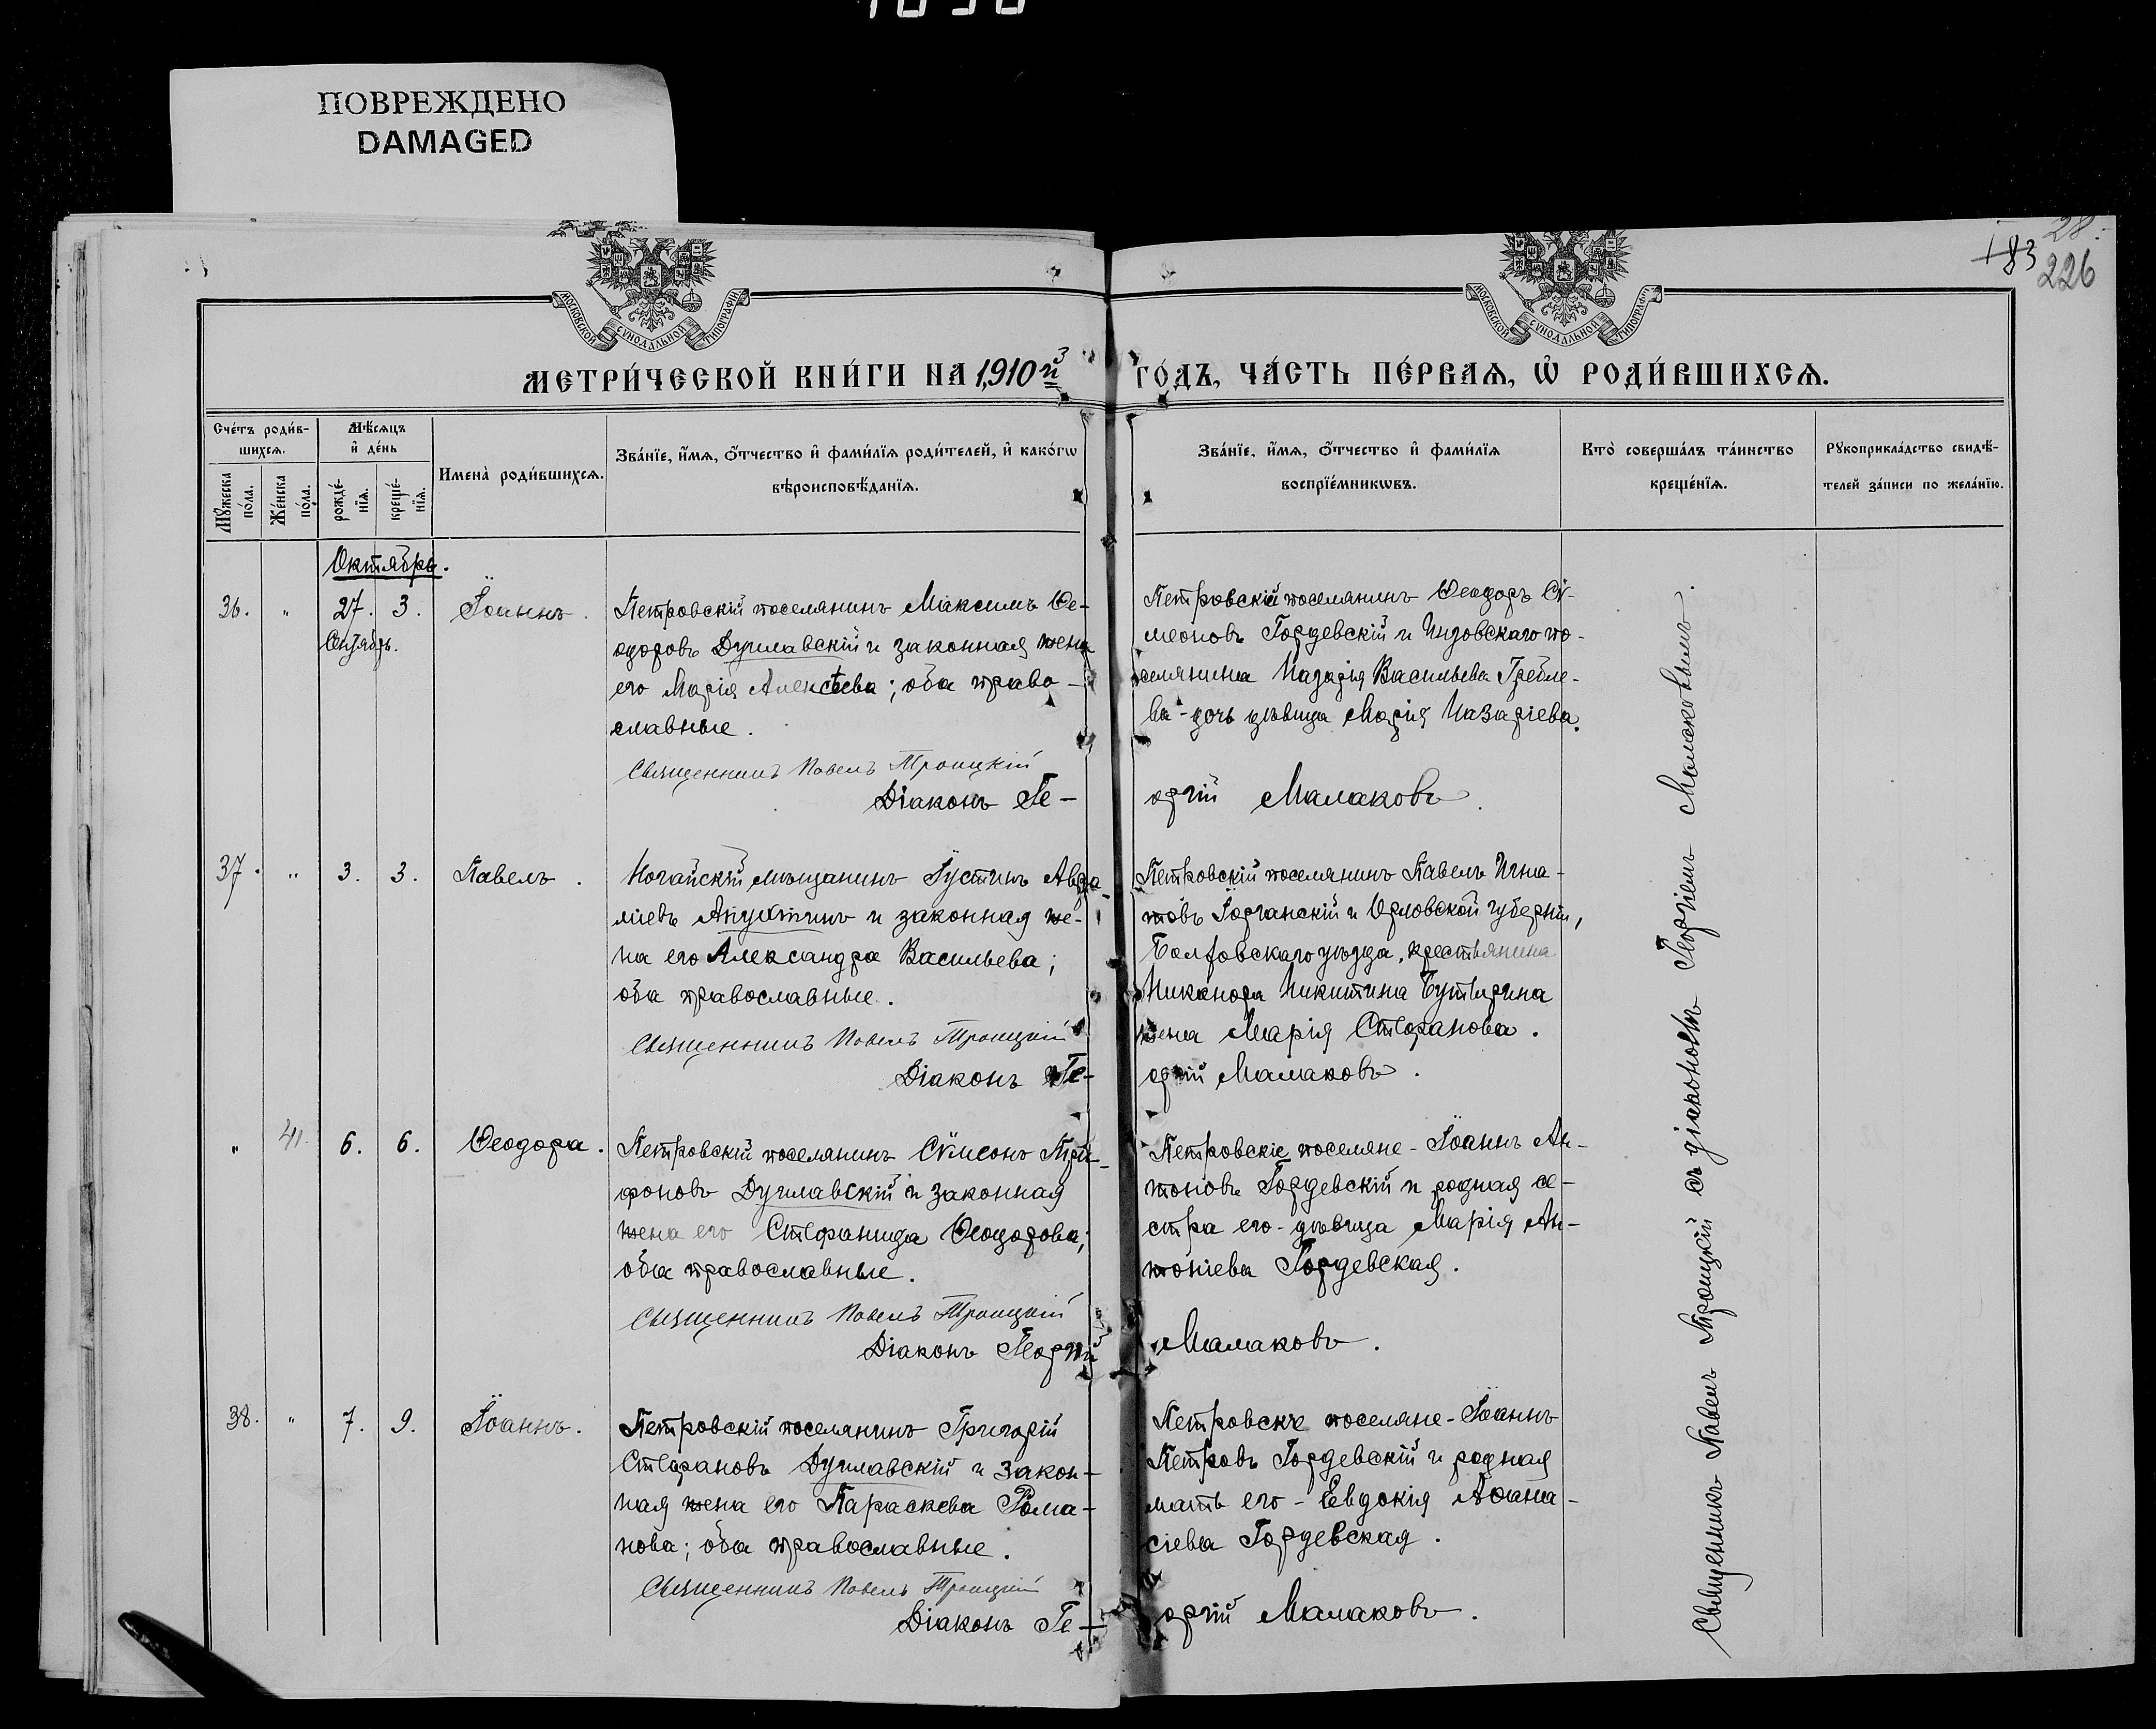 ПОВРЕЖДЕНО
DAMAGED
183
226
МОСКОВСКОЙ СѴНОДАЛЬНОЙ ТИПОГРАФІИ
МОСКОВСКОЙ СѴНОДАЛЬНОЙ ТИПОГРАФІИ
МЕТРИ́ЧЕСКОЙ КНИ́ГИ НА 1910й ГО́ДЪ, ЧА́СТЬ ПЕ́РВАЯ, Ѡ҆ РОДИ́ВШИХСЯ.
Сче́тъ роди́в-
шихся.
Му́жеска по́ла.
Же́нска по́ла.
Мѣ́сяцъ
и҆ де́нь
рожде́-
нїя.
креще́-
нїя.
Имена̀ роди́вшихся.
Зва́нїе, и҆́мя, ѻ҆́тчество и҆ фами́лїя роди́телей, и҆ како́гѡ
вѣроисповѣ́данїя.
Зва́нїе, и҆́мя, ѻ҆́тчество и҆ фами́лїя
воспрїе́мникѡвъ.
Кто̀ соверша́лъ та́инство
креще́нїя.
Рукоприкла́дство свидѣ́-
телей за́писи по жела́нїю.
Октябрь.
36. " 27. 3. Іоаннъ.
Сентябрь.
Петровскій поселянинъ Максимъ Ѳе-
одоровъ Дуплавскій и законная жена
его Марія Алексѣева; оба право-
славные.
Священникъ Павелъ Троицкій
Діаконъ Ге-
Петровскій поселянинъ Ѳеодоръ Сѵ-
меоновъ Гордевскій и Индовскаго по-
селянина Назарія Васильева Гребле-
ва - дочь дѣвица Марія Назаріева.
оргій Малаковъ.
37. " 3. 3. Павелъ.
Ногайскій мѣщанинъ Іустинъ Авра-
міевъ Апухтинъ и законная же-
на его Александра Васильева;
оба православные.
Священникъ Павелъ Троицкій
Діаконъ Ге-
Петровскій поселянинъ Павелъ Игна-
товъ Горганскій и Орловской губерніи,
Болховскаго уѣзда, крестьянина
Никанора Никитина Бутырина
жена Марія Стефанова.
оргій Малаковъ.
" 41. 6. 6. Ѳеодора.
Петровскій поселянинъ Сѵмеонъ Три-
фоновъ Дуплавскій и законная
жена его Стефанида Ѳеодорова;
оба православные.
Священникъ Павелъ Троицкій
Діаконъ Георгій
Петровскіе поселяне - Іоаннъ Ан-
тоновъ Гордевскій и родная се-
стра его - дѣвица Марія Ан-
тоніева Гордевская.
Малаковъ.
38. " 7. 9. Іоаннъ.
Петровскій поселянинъ Григорій
Стефановъ Дуплавскій и закон-
ная жена его Параскева Рома-
нова; оба православные.
Священникъ Павелъ Троицкій
Діаконъ Ге-
Петровскіе поселяне - Іоаннъ
Петровъ Гордевскій и родная
мать его - Евдокія Аѳана-
сіева Гордевская.
оргій Малаковъ.
Священникъ Павелъ Троицкій съ діакономъ Георгіемъ Малаковымъ.